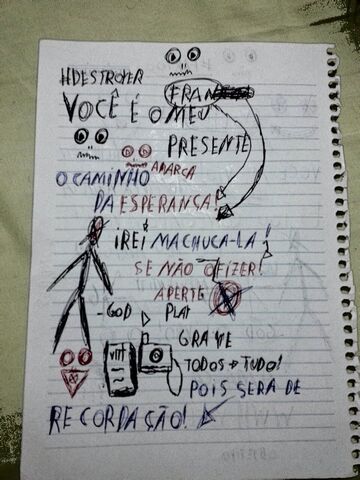 HDESTROYER
FRAN
VOCÊ É O MEU
PRESENTE
A MARCA
O CAMINHO
DA ESPERANÇA!
IREI MACHUCA-LA
SE NÃO O FIZER!
APERTE
-GOD
PLAY
GRAVE
VIII
TODOS → TUDO!
POIS SERA DE
RECORDAÇÃO!